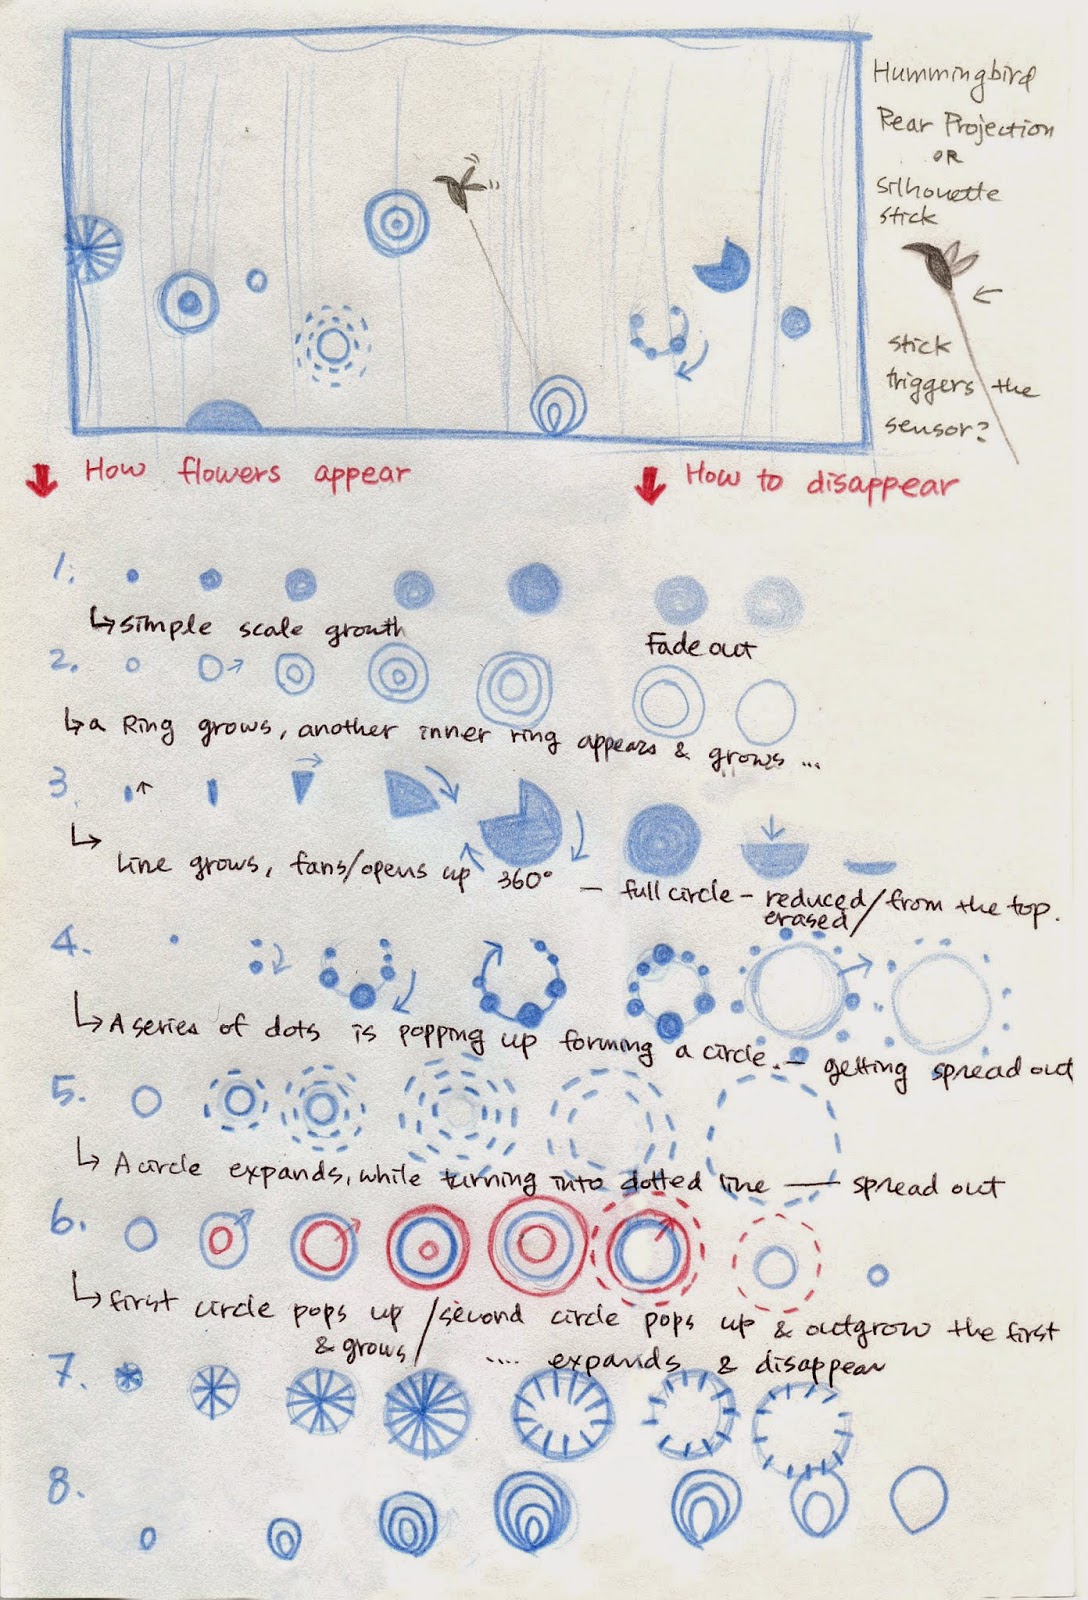 Hummingbird
Rear Projection
OR
silhouette
stick
stick
triggers the
sensor?
How flowers appear
How to disappear
1.
simple scale growth
Fade out
2.
a Ring grows, another inner ring appears & grows ...
3.
line grows, fans/opens up 360° — full circle - reduced/from the top.
erased/
4.
A series of dots is popping up forming a circle. — getting spread out
5.
A circle expands, while turning into dotted line — spread out
6.
first circle pops up / second circle pops up & outgrow the first
& grows / .... expands & disappear
7.
8.